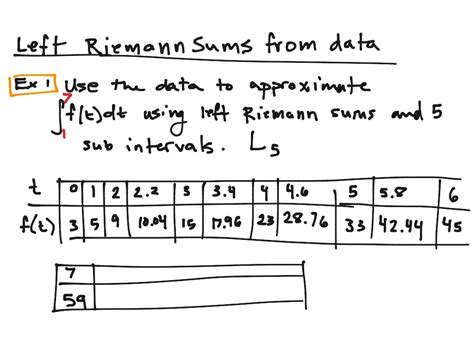 Left Riemann Sums from data
Ex 1 Use the data to approximate
∫₁⁷ f(t)dt using left Riemann sums and 5
sub intervals. L₅
t 0 1 2 2.2 3 3.4 4 4.6 5 5.8 6
f(t) 3 5 9 10.04 15 17.96 23 28.76 33 42.44 45
7
59